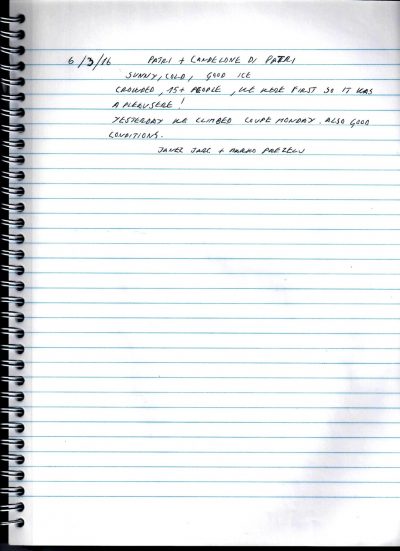 6/3/16 PATRI + CANDELONE DI PATRI
SUNNY, COLD, GOOD ICE
CROWDED, 15+ PEOPLE, WE WERE FIRST SO IT WAS
A PLEAUSERE!
YESTERDAY WE CLIMBED COUPE MONDAY. ALSO GOOD
CONDITIONS.
JANEZ + MARKO